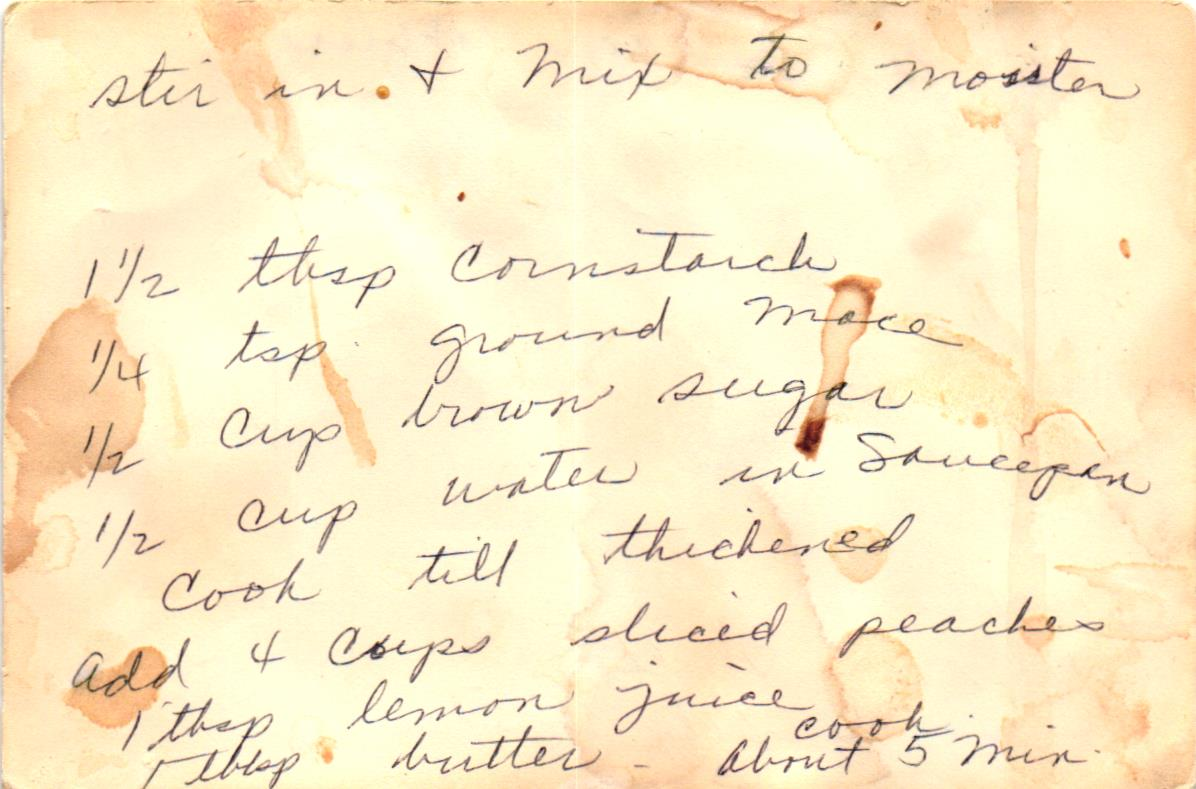 stir in & Mix to moister
1 1/2 tbsp Cornstarch
1/4 tsp. ground mace
1/2 Cup brown sugar
1/2 Cup water in Saucepan
Cook till thickened
add 4 Cups sliced peaches
1 tbsp lemon juice
1 tbsp butter - cook about 5 Min.